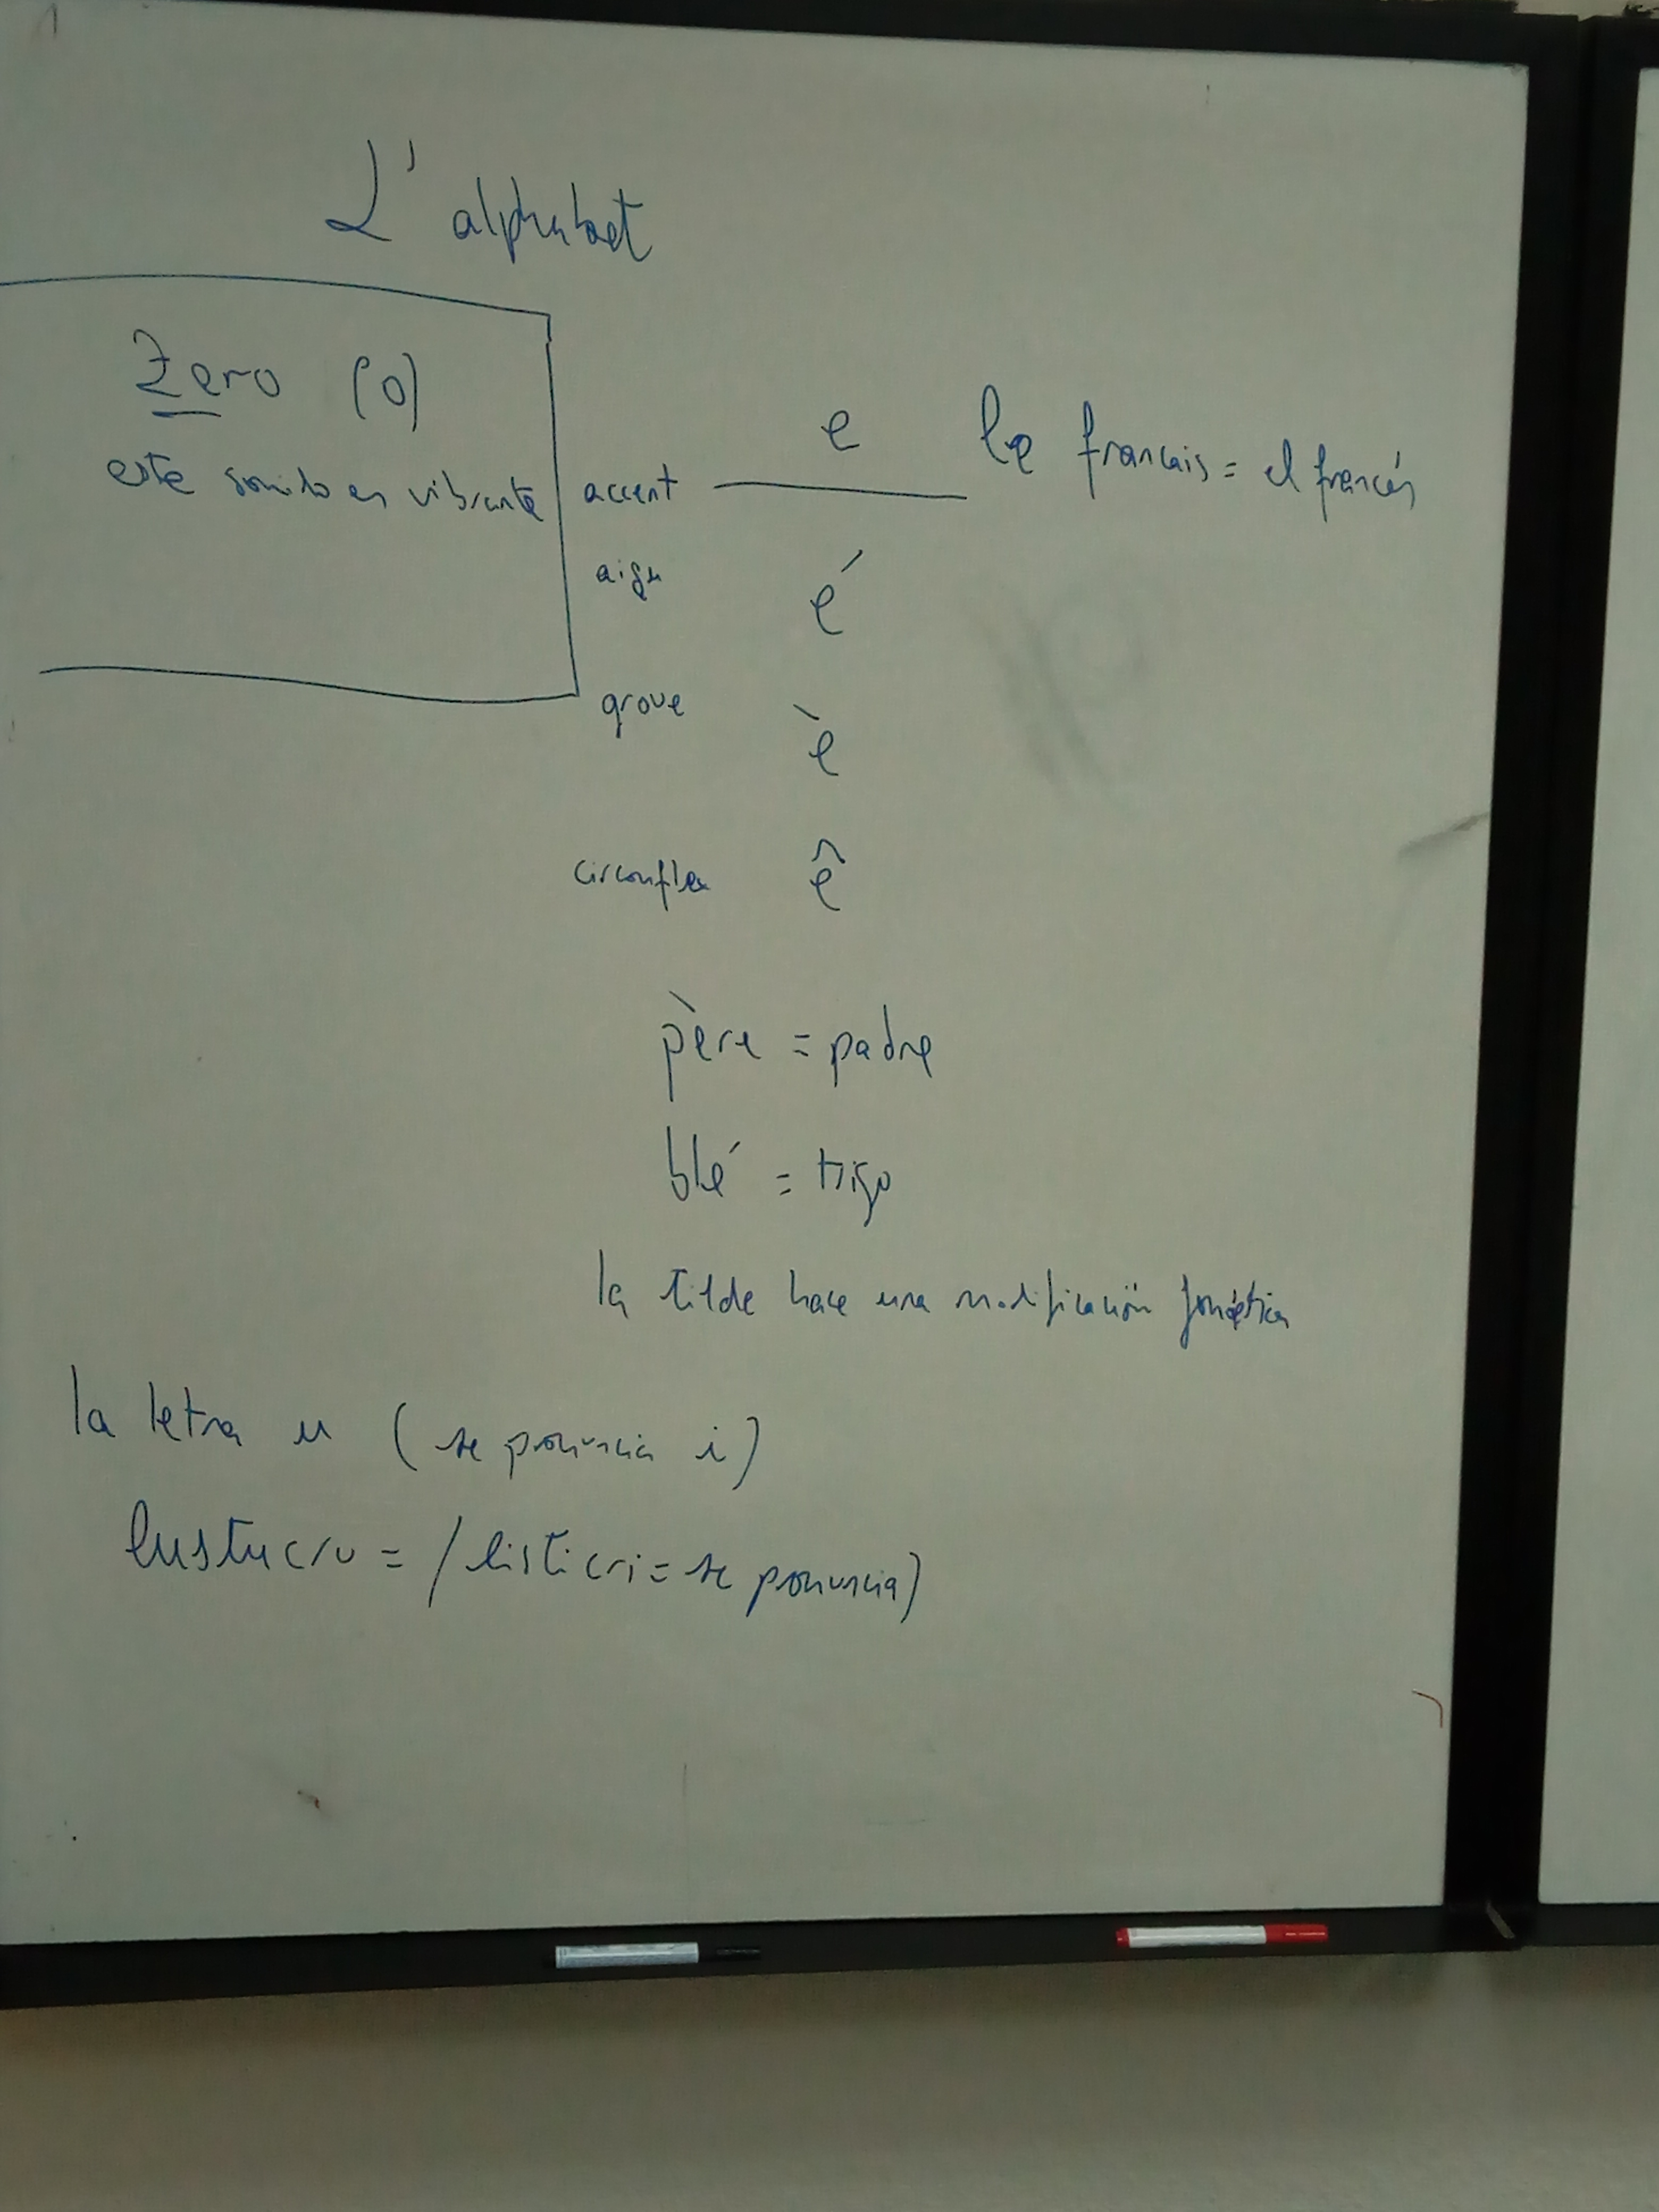 L'alphabet
Zero (0)
este sonido es vibrante
e le francais = el francés
accent
aigu é
grave è
circonflex ê
père = padre
blé = trigo
la tilde hace una modificación fonética
la letra u (se pronuncia i)
lustucru = /listicri = se pronuncia)